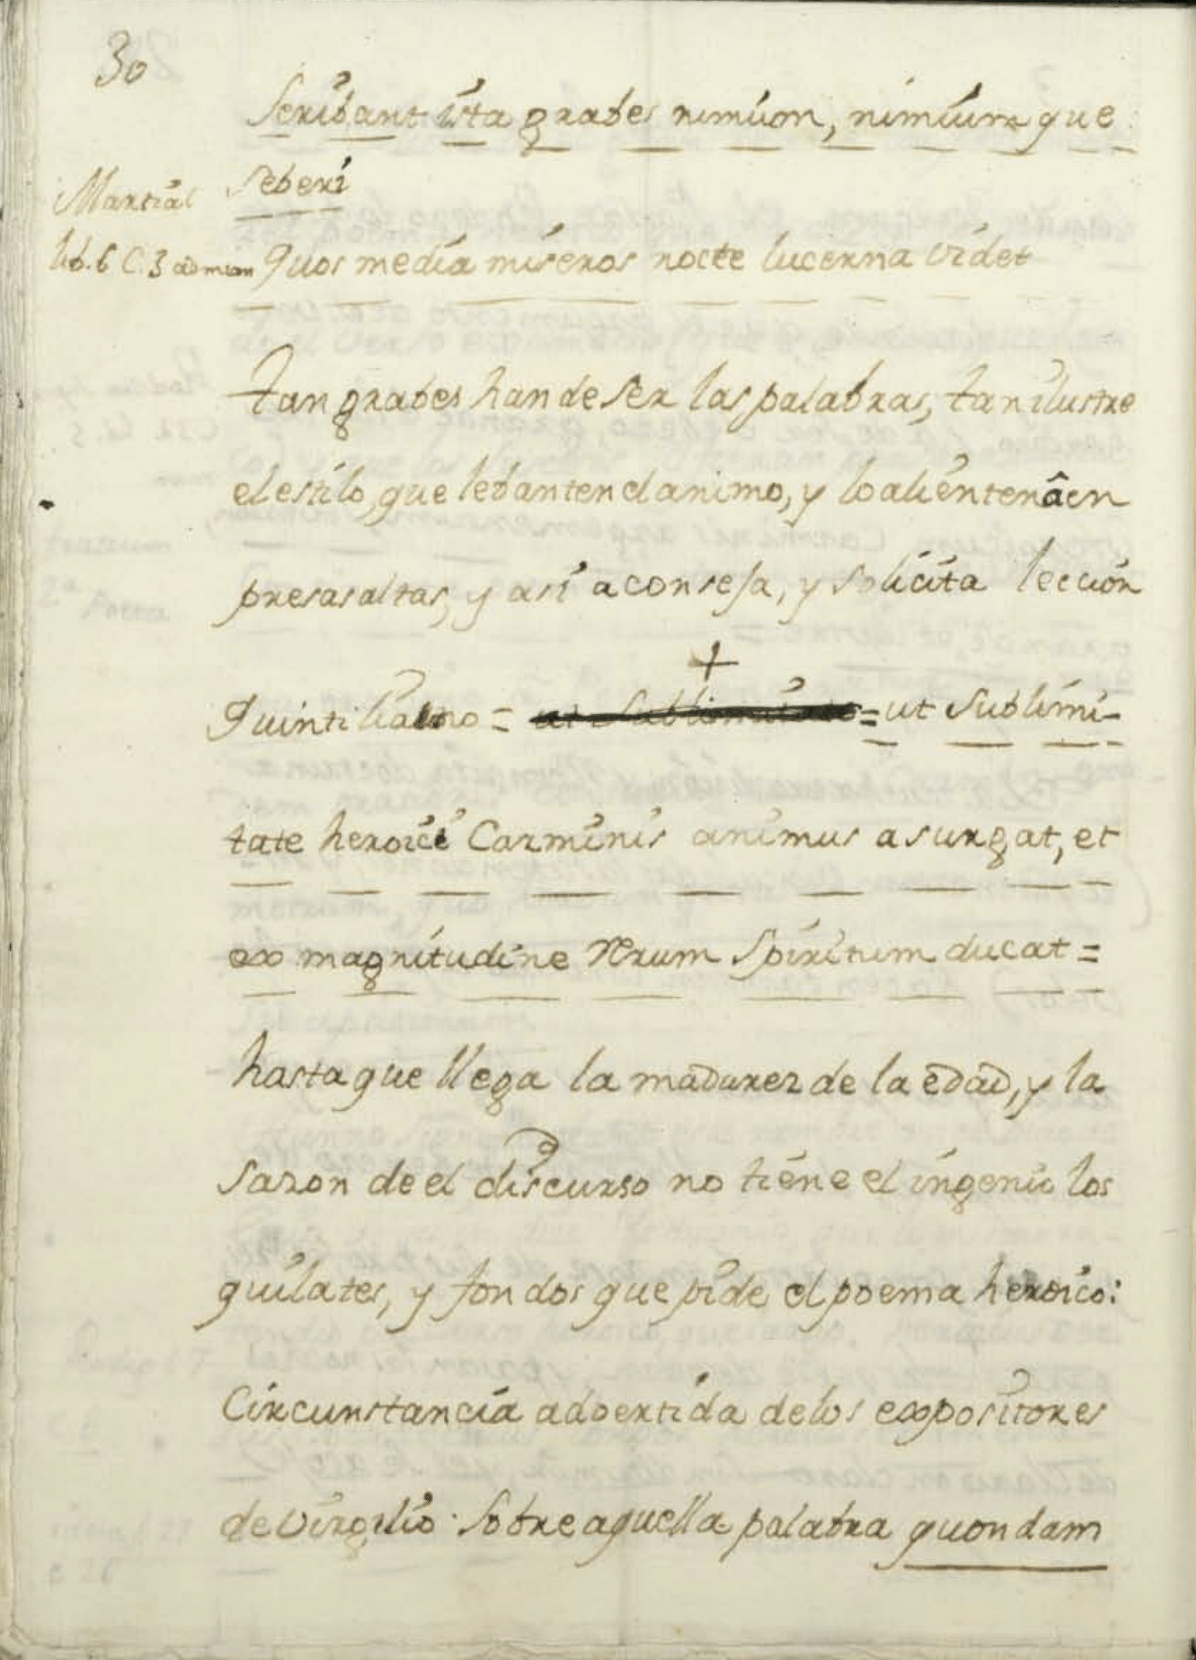 30
Scribant ista grabes nimium, nimiumque
Seberi
Martial
lib. 6 C. 3 ad
Quos media miseros nocte lucerna videt
tan grabes han de ser las palabras, tan ilustre
el estilo, que lebanten el animo, y lo alienten â em
presas altas, y asi aconseja, y solicita leccion
Quintiliano = ut Sublimitate = ut Sublimi-
tate heroici Carminis animus asurgat, et
ex magnitudine rerum Spiritum ducat =
hasta que llega la madurez de la edad, y la
sazon de el discurso no tiene el ingenio los
quilates, y fondos que pide el poema heroico:
Circunstancia advertida de los expositores
de Virgilio sobre aquella palabra quondam